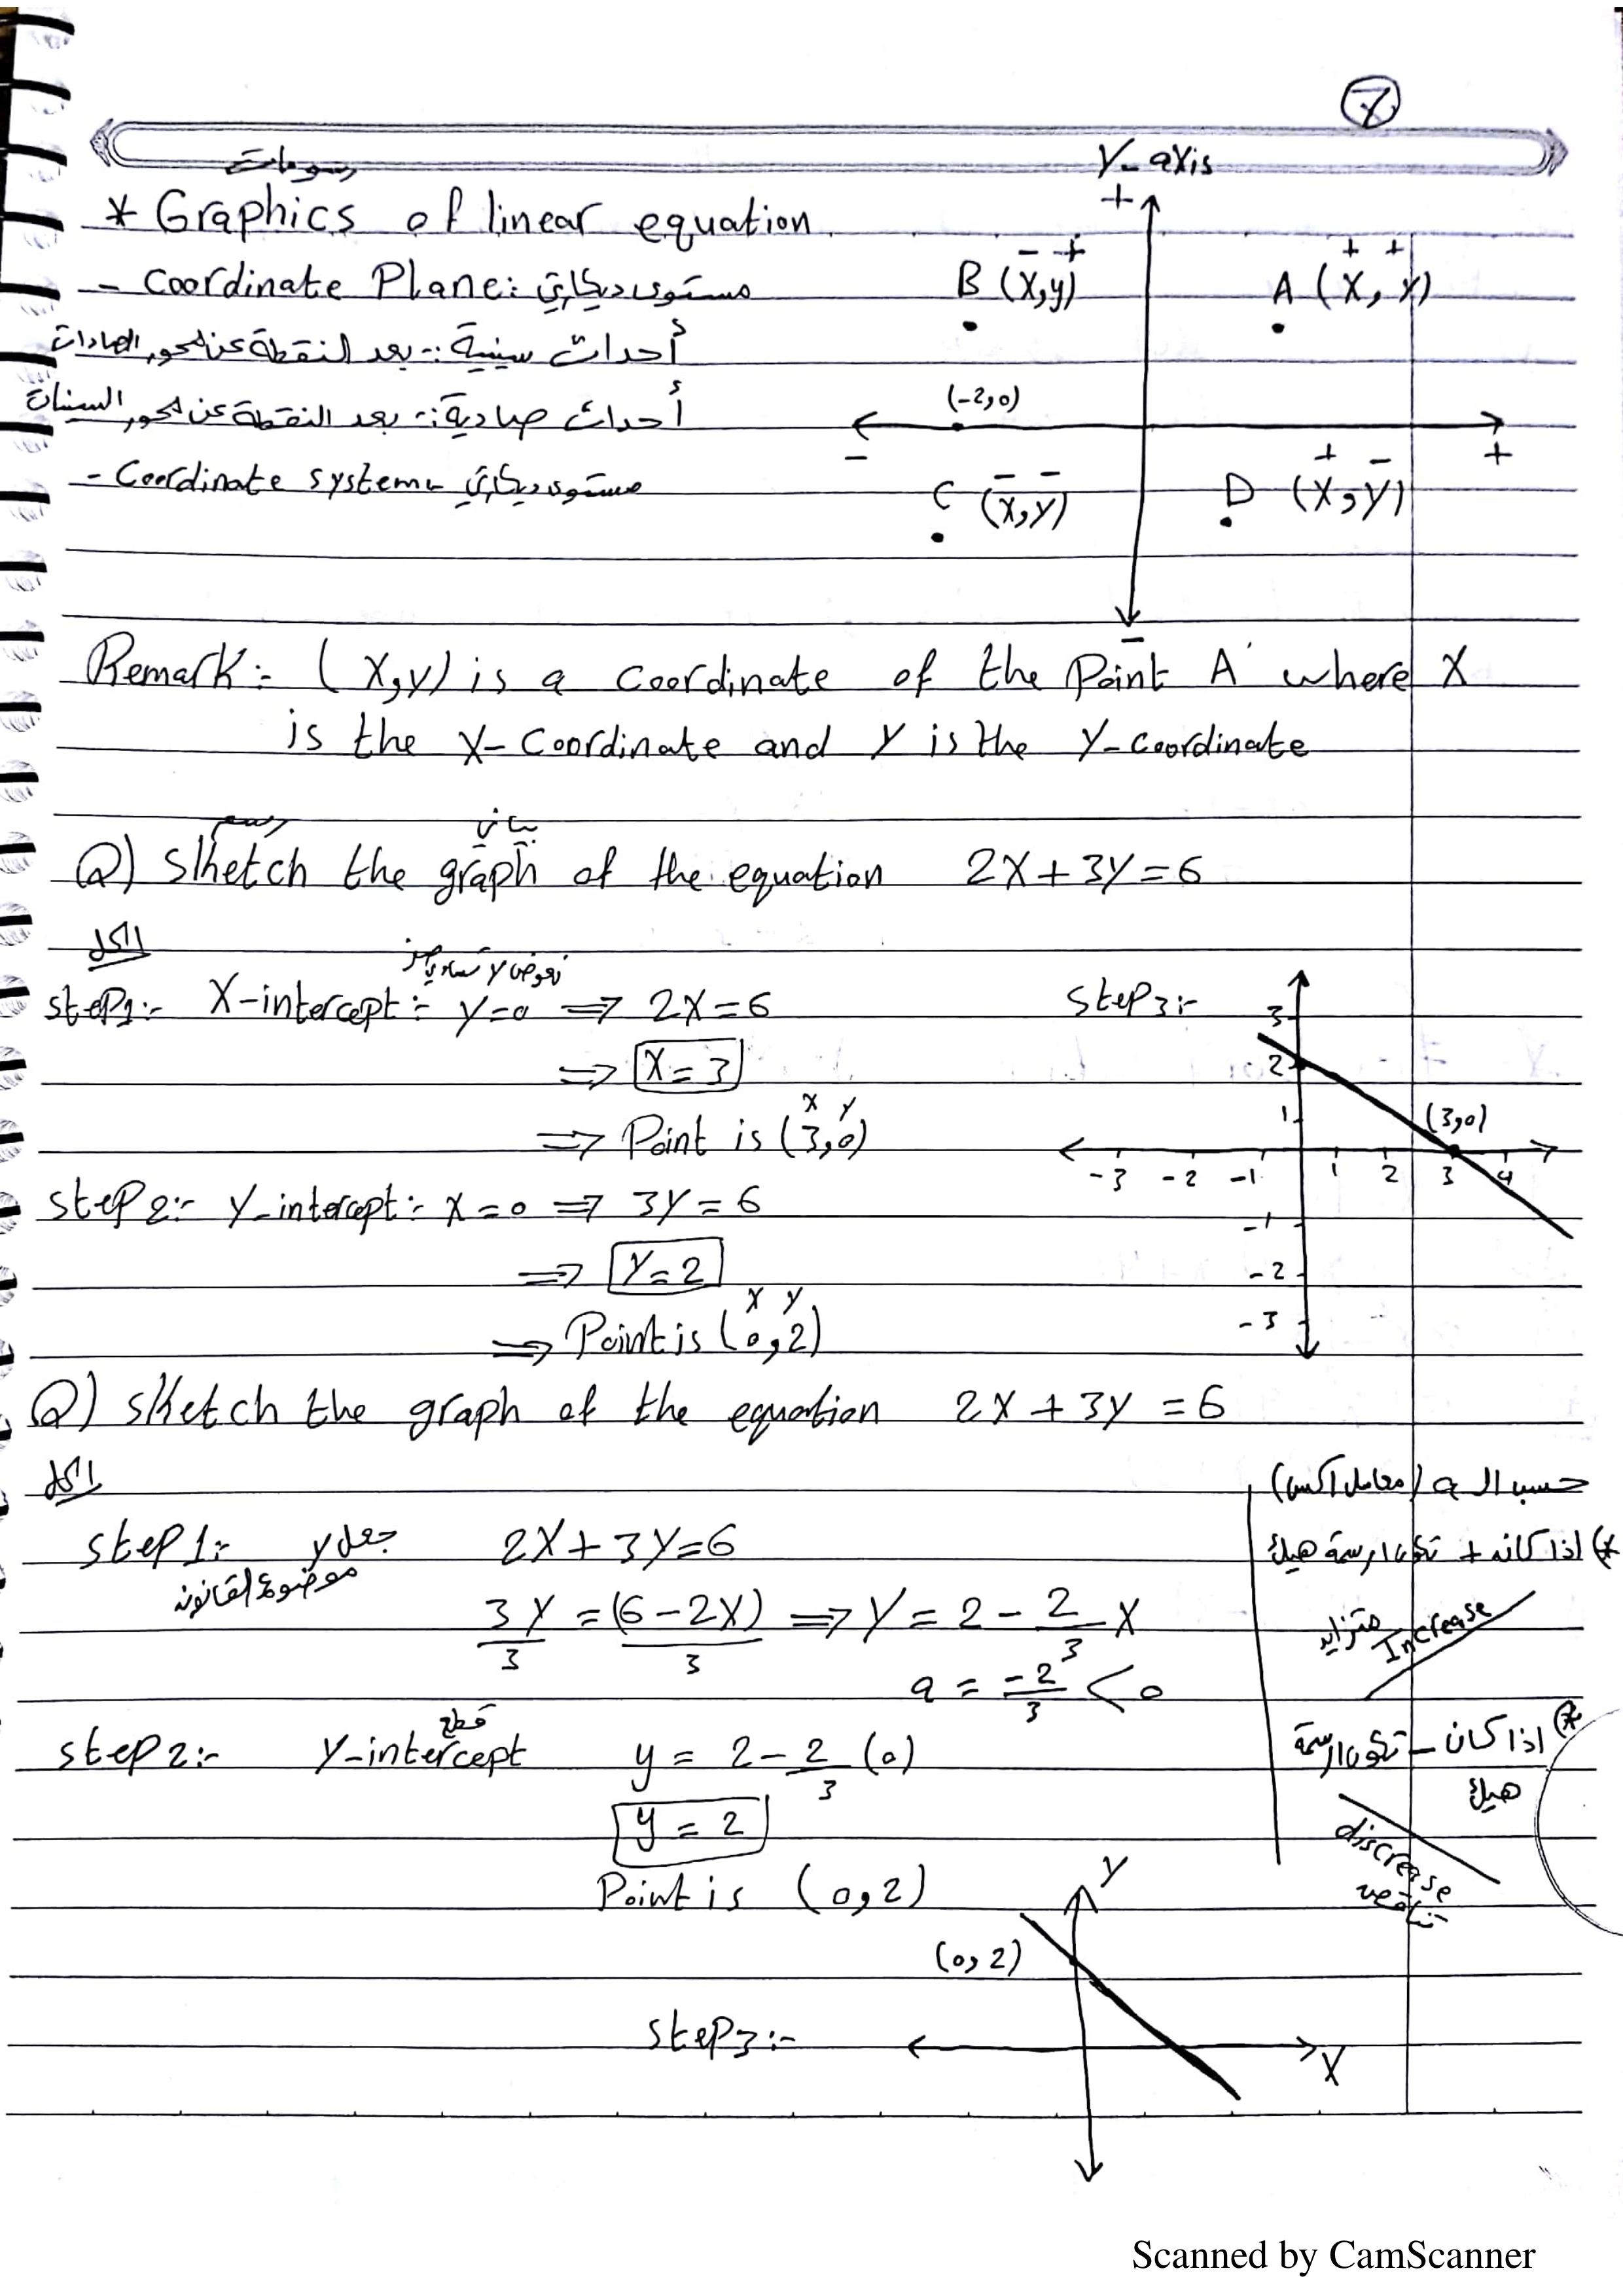 7
رسومات
* Graphics of linear equation
- Coordinate Plane: مستوى ديكارتي
أحداث سينية :- بعد النقطة عن محور الصادات
أحداث صادية :- بعد النقطة عن محور السينات
- Coordinate system :- مستوى ديكارتي
y-axis
+
- +
B (x,y)
+ +
A (x, y)
(-2,0)
-
+
- -
C (x,y)
+ -
D (x,y)
-
Remark:- (x,y) is a coordinate of the Point A where x
is the x-coordinate and y is the y-coordinate
رسم بياني
Q) Sketch the graph of the equation 2x+3y=6
الحل
نعوض y تساوي صفر
step1:- x-intercept:- y=0 ⇒ 2x=6
⇒ x=3
x y
⇒ Point is (3,0)
step2:- y-intercept:- x=0 ⇒ 3y=6
⇒ y=2
x y
⇒ Point is (0,2)
step3:-
3
2
1
(3,0)
-3 -2 -1 1 2 3 4
-1
-2
-3
Q) sketch the graph of the equation 2x+3y=6
الحل
step1:- جعل y 2x+3y=6
موضوع القانون
3y/3 = (6-2x)/3 ⇒ y = 2 - 2/3 x
a = -2/3 < 0
قطع
step2:- y-intercept y = 2 - 2/3 (0)
y = 2
Point is (0,2)
حسب ال a (معامل اكس)
*) اذا كانه + تكون الرسمة هيك
متزايد Increase
*) اذا كان - تكون الرسمة
هيك
discrease
تناقص
step3:-
y
(0,2)
x
Scanned by CamScanner